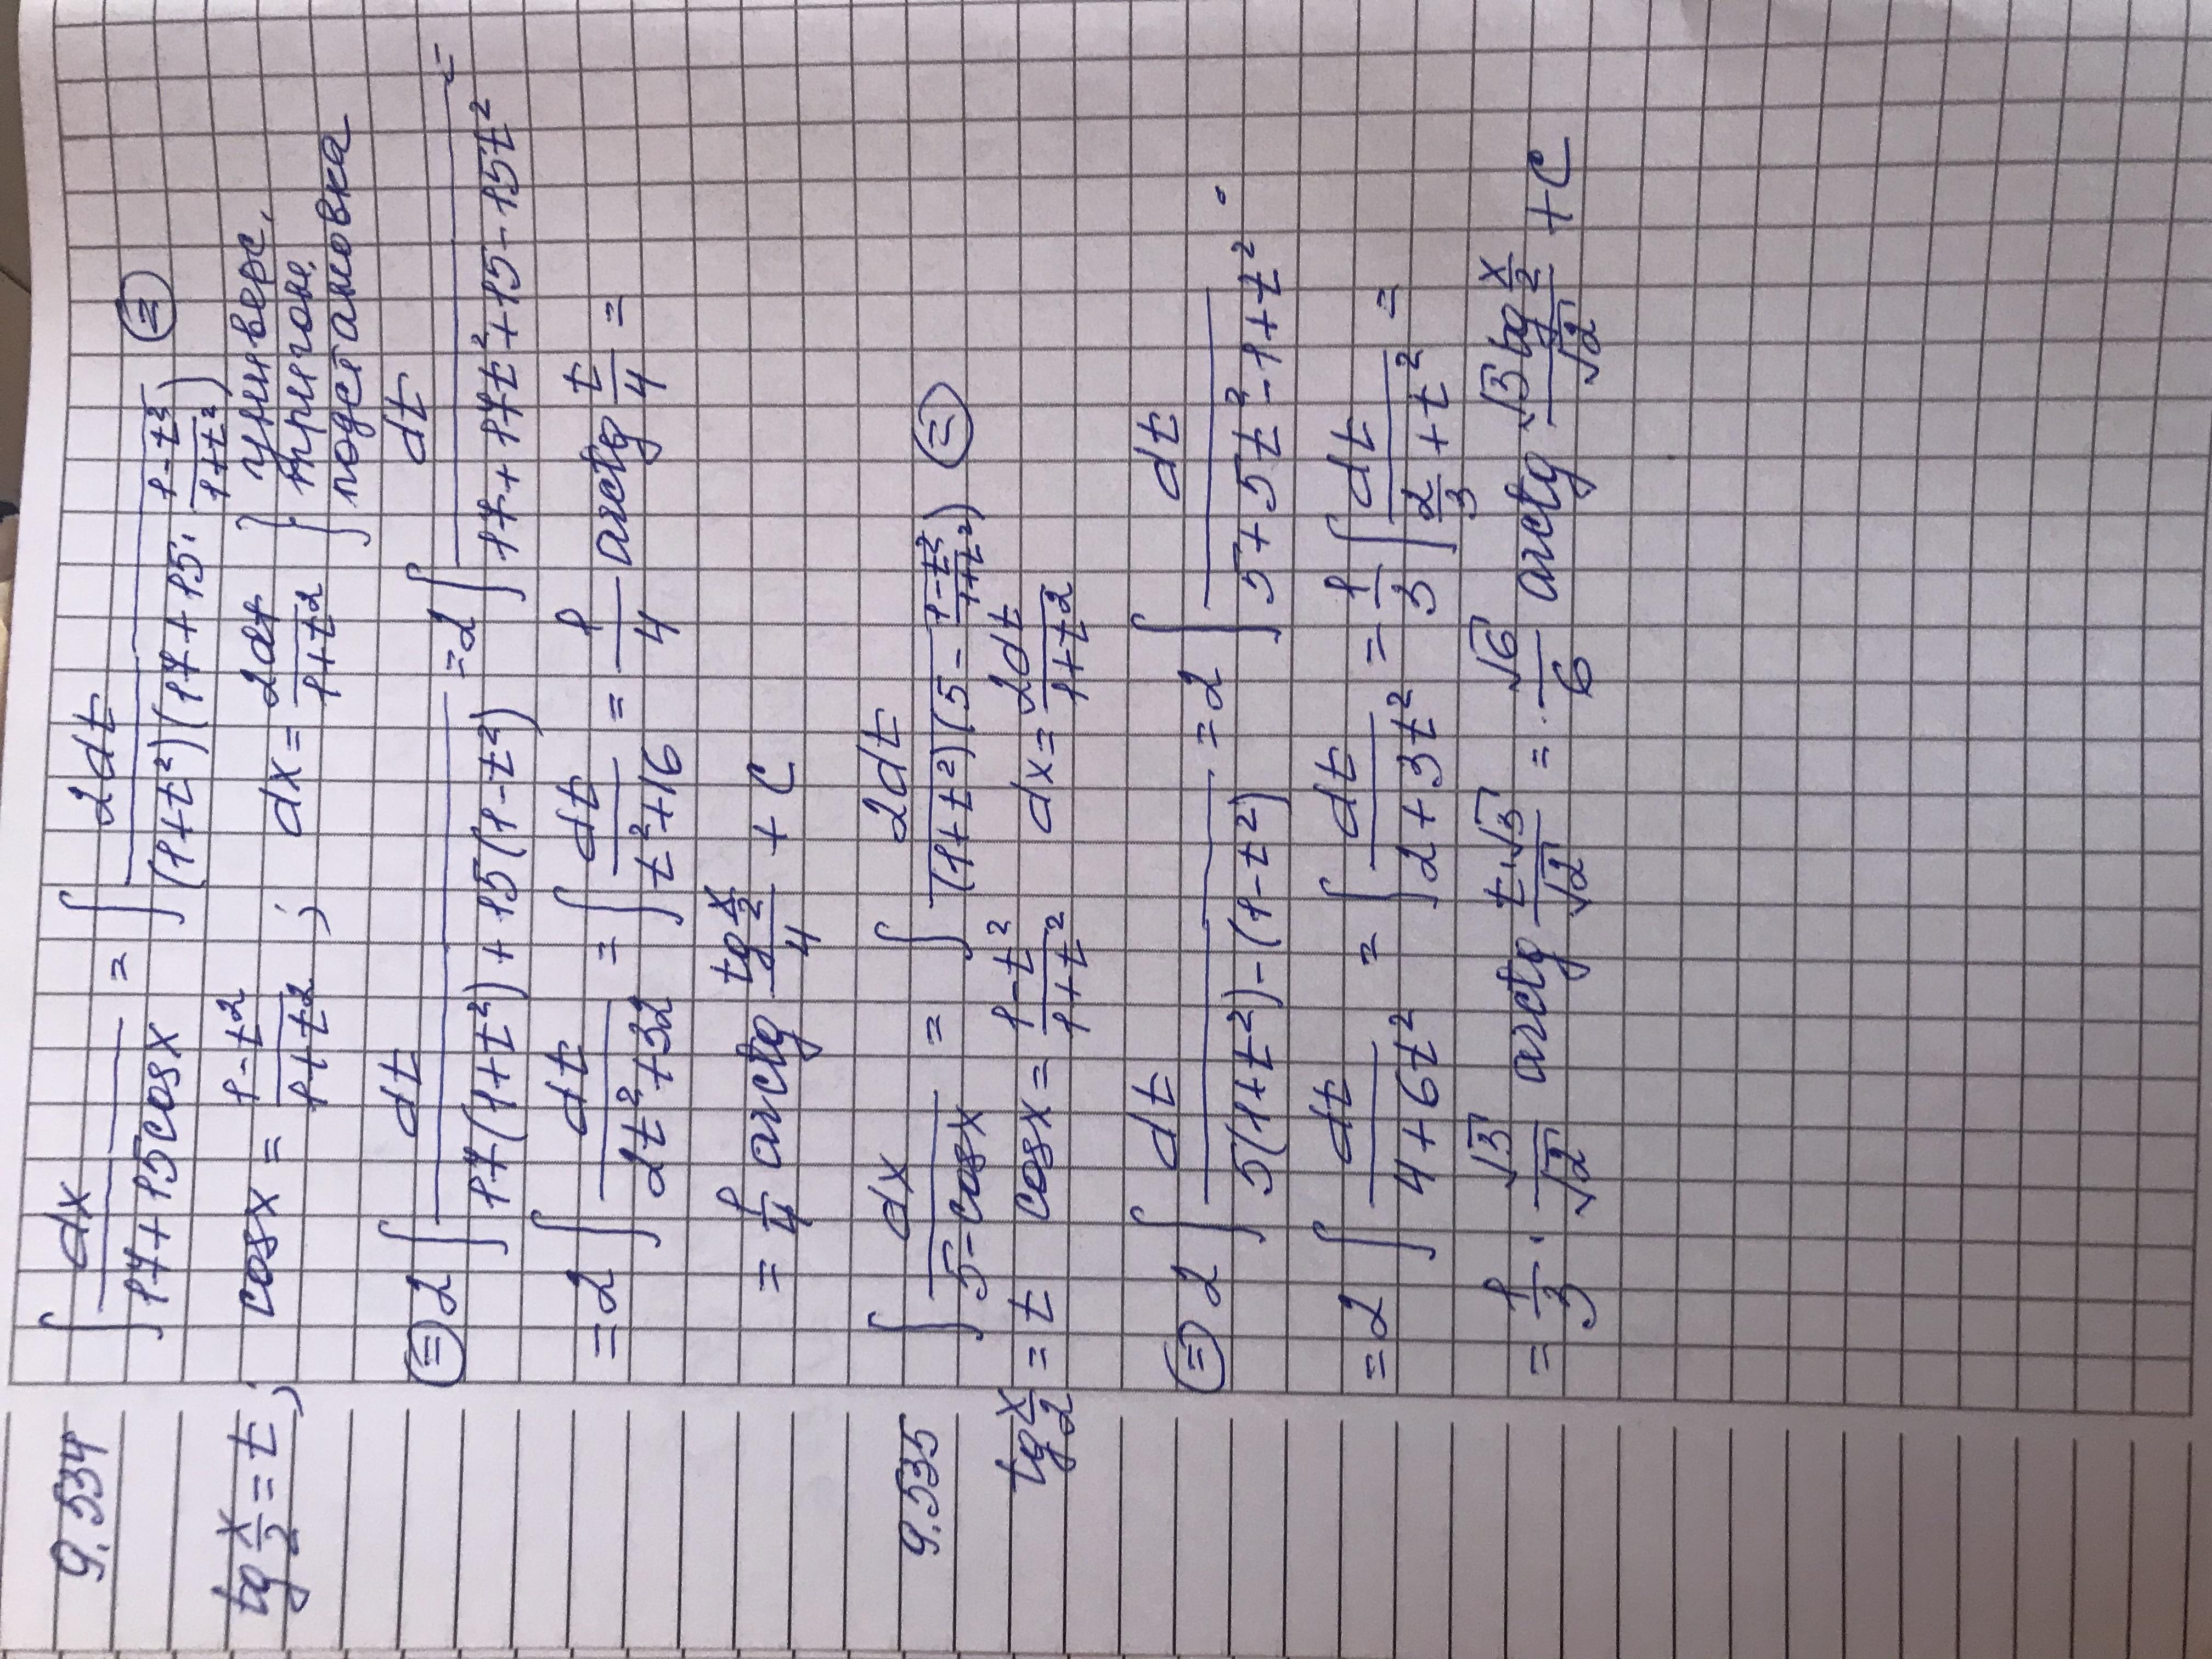 9.534 ∫ dx/(17+15cosx) = ∫ 2dt/((1+t²)(17+15·(1-t²)/(1+t²))) ⊜
tg x/2 = t; cosx = (1-t²)/(1+t²); dx = 2dt/(1+t²) } универс.
тригон.
подстановка
⊜ 2∫ dt/(17(1+t²)+15(1-t²)) = 2∫ dt/(17+17t²+15-15t²) =
= 2∫ dt/(2t²+32) = ∫ dt/(t²+16) = 1/4 arctg t/4 =
= 1/4 arctg (tg x/2)/4 + C
9.535 ∫ dx/(5-cosx) = ∫ 2dt/((1+t²)(5-(1-t²)/(1+t²))) ⊜
tg x/2 = t cosx = (1-t²)/(1+t²) dx = 2dt/(1+t²)
⊜ 2∫ dt/(5(1+t²)-(1-t²)) = 2∫ dt/(5+5t²-1+t²)
= 2∫ dt/(4+6t²) = ∫ dt/(2+3t²) = 1/3 ∫ dt/(2/3+t²) =
= 1/3 · √3/√2 arctg t·√3/√2 = √6/6 arctg (√3 tg x/2)/√2 + C